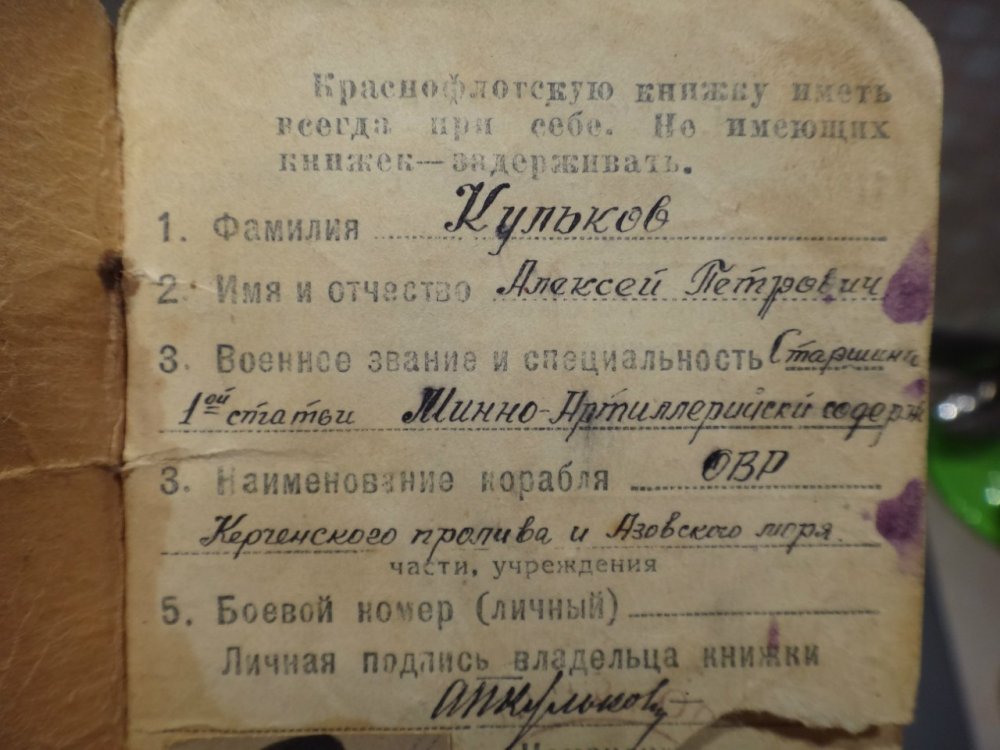 Краснофлотскую книжку иметь
всегда при себе. Не имеющих
книжек—задерживать.
1. Фамилия Кульков
2. Имя и отчество Алексей Петрович
3. Военное звание и специальность Старшина
1ой статьи Минно-Артиллерийский содерж
3. Наименование корабля ОВР
Керченского пролива и Азовского моря.
части, учреждения
5. Боевой номер (личный)
Личная подпись владельца книжки
АПКульков